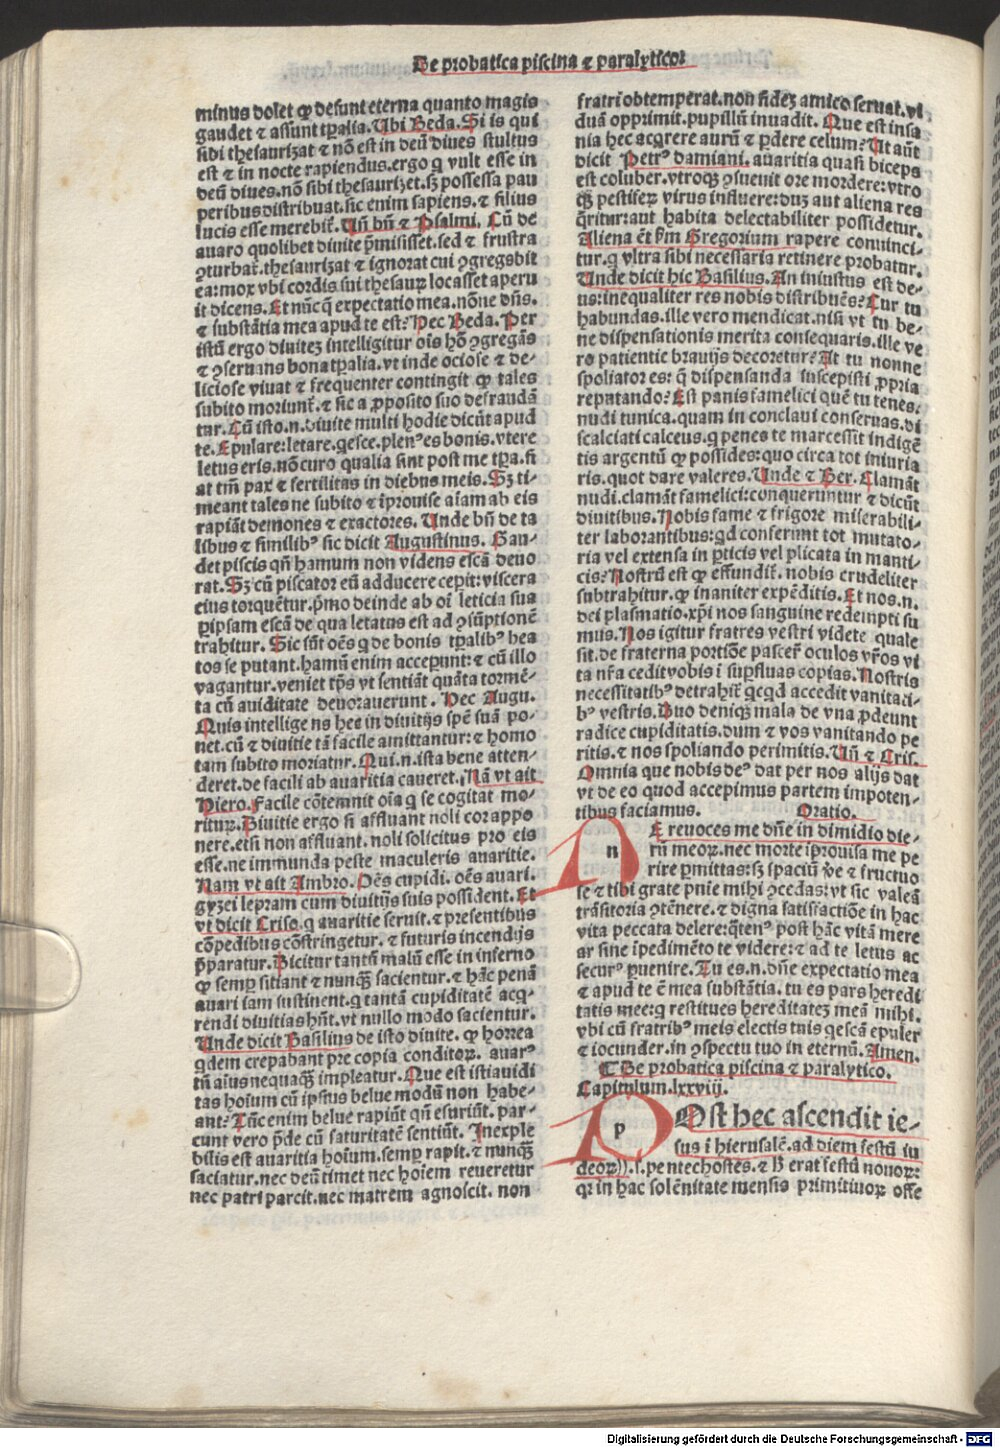 De probatica piscina ⁊ paralytico.
minus dolet ꝙ desunt eterna quanto magis
gaudet ⁊ assunt tp̄alia. Ubi Beda. Si is qui
sibi thesaurizat ⁊ nō est in deū diues stultus
est ⁊ in nocte rapiendus. ergo q̄ vult esse in
deū diues. nō sibi thesaurizet. sꝫ possessa pau
peribus distribuat. sic enim sapiens. ⁊ filius
lucis esse merebit̄. Uñ bñ ⁊ Psalmi. Cū de
auaro quolibet diuite p̄misisset. sed ⁊ frustra
ꝯturbat̄. thesaurizat ⁊ ignorat cui ꝯgregabit
ea: mox vbi cordis sui thesauꝝ locasset aperu
it dicens. Et nūc q̄ expectatio mea. nōne dn̄s.
⁊ substātia mea apud te est? Hec Beda. Per
istū ergo diuitez intelligitur oīs hō ꝯgregās
⁊ ꝯseruans bona tp̄alia. vt inde ociose ⁊ de-
liciose viuat ⁊ frequenter contingit ꝙ tales
subito moriunt̄. ⁊ sic a ꝓposito suo defraudā
tur. Cū isto .n. diuite multi hodie dicūt apud
te. Epulare: letare. q̄esce. plenꝰ es bonis. vtere
letus eris. nō curo qualia sint post me tp̄a. fi
at tm̄ pax ⁊ fertilitas in diebus meis. Sꝫ ti-
meant tales ne subito ⁊ īprouise aīam ab eis
rapiāt demones ⁊ exactores. Unde bñ de ta
libus ⁊ similibꝰ sic dicit Augustinus. Gau-
det piscis qn̄ hamum non videns escā deuo
rat. Sꝫ cū piscator eū adducere cepit: viscera
eius torquētur. p̄mo deinde ab oī leticia sua
ꝑ ipsam escā de qua letatus est ad ꝯsūptionē
trahitur. Sic sūt oēs q̄ de bonis tp̄alibꝰ bea
tos se putant. hamū enim acceperunt: ⁊ cū illo
vagantur. veniet tp̄s vt sentiāt quāta tormē-
ta cū auiditate deuorauerunt. Hec Augu.
Quis intelligens hec in diuitijs spē suā po-
net. cū ⁊ diuitie tā facile amittantur: ⁊ homo
tam subito moriatur. Qui .n. ista bene atten-
deret. de facili ab auaritia caueret. Nā vt ait
Hiero. Facile cōtemnit oīa q̄ se cogitat mo-
riturꝝ. Diuitie ergo si affluant noli cor appo
nere. etsi non affluant. noli solicitus pro eis
esse. ne immunda peste maculeris auaritie.
Nam vt ait Ambro. Oēs cupidi. oēs auari.
gyzei lepram cum diuitijs suis possident. Et
vt dicit Criso. q̄ auaritie seruit. ⁊ presentibus
cōpedibus cōstringetur. ⁊ futuris incendijs
p̄paratur. Dicitur tantū malū esse in inferno
ꝙ semꝑ sitiant ⁊ nunq̄ꝫ sacientur. ⁊ hāc penā
auari iam sustinent. q̄ tantā cupiditatē acq̄-
rendi diuitias hn̄t. vt nullo modo sacientur.
Unde dicit Basilius de isto diuite. ꝙ horrea
q̄dem crepabant pre copia conditoꝝ. auarꝰ
tn̄ aīus nequaq̄ꝫ impleatur. Que est ista uidi
tas hoīum cū ipsius belue modū non habe-
ant? Tūc enim belue rapiūt qn̄ esuriūt. par-
cunt vero p̄de cū saturitatē sentiūt. Inexple
bilis est auaritia hoīum. semꝑ rapit. ⁊ nunq̄ꝫ
saciatur. nec deū timet nec hoīem reueretur
nec patri parcit. nec matrem agnoscit. non
fratri obtemperat. non fidez amico seruat. vi-
duā opprimit. pupillū inuadit. Que est insa
nia hec acq̄rere aurū ⁊ ꝑdere celum? Ut aūt
dicit Petrꝰ damiani. auaritia quasi biceps
est coluber. vtroqꝫ ꝯsueuit ore mordere: vtro
q̄ꝫ pestiferꝫ virus influere: duꝫ aut aliena res
q̄ritur: aut habita delectabiliter possidetur.
Aliena ēt ẜm Gregorium rapere conuinci-
tur. q̄ vltra sibi necessaria retinere probatur.
Unde dicit hic Basilius. An iniustus est de-
us: inequaliter res nobis distribuēs? Cur tu
habundas. ille vero mendicat. nisi vt tu be-
ne dispensationis merita consequaris. ille ve
ro patientie brauijs decoretur? At tu nonne
spoliator es: q̄ dispensanda suscepisti ꝓpria
reputando? Est panis famelici quē tu tenes.
nudi tunica. quam in conclaui conseruas. di
scalciati calceus. q̄ penes te marcessit indigē
tis argentū ꝙ possides: quo circa tot iniuria
ris. quot dare valeres. Unde ⁊ Ber. Clamāt
nudi. clamāt famelici: conqueruntur ⁊ dicūt
diuitibus. Nobis fame ⁊ frigore miserabili-
ter laborantibus: qd conferunt tot mutato-
ria vel extensa in ꝑticis vel plicata in manti-
cis? Nostrū est ꝙ effundit̄. nobis crudeliter
subtrahitur. ꝙ inaniter expēditis. Et nos .n.
dei plasmatio. xp̄i nos sanguine redempti su
mus. Nos igitur fratres vestri videte quale
sit. de fraterna portiōe pascer̄ oculos vr̄os vi
ta nr̄a cedit vobis ī suꝑfluas copias. Nostris
necessitatibꝰ detrahit̄ q̄cqd accedit vanitati-
bꝰ vestris. Duo deniqꝫ mala de vna ꝓdeunt
radice cupiditatis. dum ⁊ vos vanitando pe
ritis. ⁊ nos spoliando perimitis. Uñ ⁊ Cris.
Omnia que nobis deꝰ dat per nos alijs dat
vt de eo quod accepimus partem impoten-
tibus faciamus. Oratio.
nE reuoces me dn̄e in dimidio die-
rū meoꝝ. nec morte īprouisa me pe
rire ꝑmittas: sꝫ spaciū ve ⁊ fructuo
se ⁊ tibi grate pn̄ie mihi ꝯcedas: vt sic valeā
trāsitoria ꝯtēnere. ⁊ digna satisfactiōe in hac
vita peccata delere: q̄tenꝰ post hāc vitā mere
ar sine īpedimēto te videre: ⁊ ad te letus ac
securꝰ ꝑuenire. Tu es .n. dn̄e expectatio mea
⁊ apud te ē mea substātia. tu es pars heredi
tatis mee: q̄ restitues hereditatez meā mihi.
vbi cū fratribꝰ meis electis tuis q̄escā epuler
⁊ iocunder. in ꝯspectu tuo in eternū. Amen.
¶ De probatica piscina ⁊ paralytico.
Capitulum. lxxviij.
pOst hec ascendit ie-
sus ī hierusalē. ad diem festū iu
deoꝝ)). s. pentechostes. ⁊ B erat festū nouoꝝ:
qꝛ in hac solēnitate mensis primitiuoꝝ offe
Digitalisierung gefördert durch die Deutsche Forschungsgemeinschaft - DFG